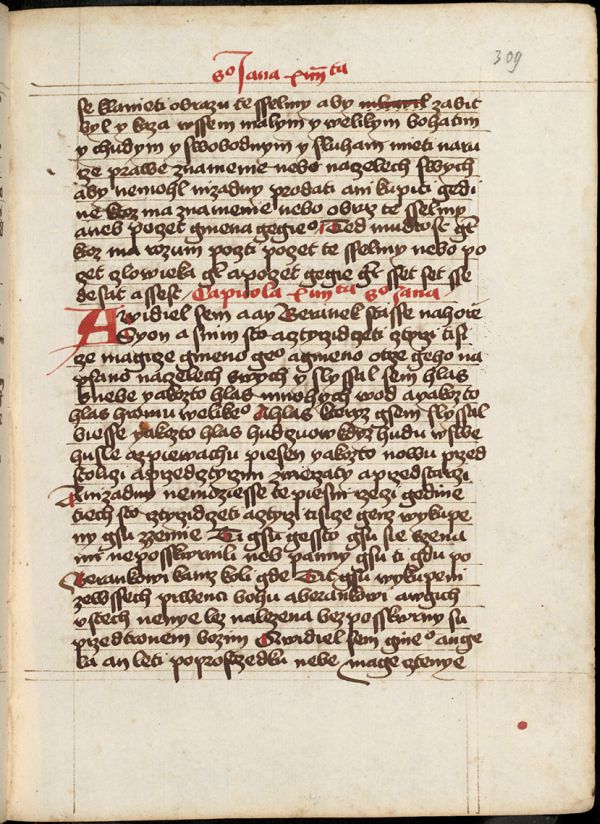 309
So Jana xiiii ta
se klanieti obrazu te sselmy aby zabit
byl y kaza wssem malym y welikym bohatim
y chudym y swobodnym y sluham mieti naru
ze prawe znamenie nebo nacelech swych
aby nemohl nizadny prodati ani kupiti gedi
ne ktoz ma znamenie nebo obraz te sselmy
aneb pocet gmena gegieo Ted mudrost gt
ktoz ma rozum pocti pocet te sselmy nebo po
cet czlowieka gt a pocet gegie gt sset set sse
desat a ssest Capitola xiiii ta So Jana
A widiel sem a ay Beranek stasse nahorie
Syon a snim sto a cztyrzidceti cztyrzi tisi
cze magicze gmeno geo a gmeno otcze geho na
psano nacelech swych y slyssal sem hlas
s nebe yakozto hlas mnohych wod a yakozto
hlas hromu welikeo A hlas kteryz gsem slyssal
biesse yakozto hlas hudczuow kdyz hudu w swe
husle a zpiewachu piesen yakozto nowu przed
stoliczi a przed cztyrzmi zwierzaty a przed starczi
A nizadny nemoziesse te piesni rzeczi gedine
tiech sto cztyrzidceti a cztyrzi tisicze genz wykupe
ny gsu z zemie Ti gsu gessto gsu sie s zena
mi neposskwrnili neb panny gsu ti gdu po
Berankowi kamz koli gde Tit gsu wykupeni
ze wssech prwenci bohu a berankowi a w gich
vstech nenye lez nalezena bez posskwrny su
przed tronem bozim A widiel sem gineo ange
la an leti po prostrzedku nebe mage cztenye